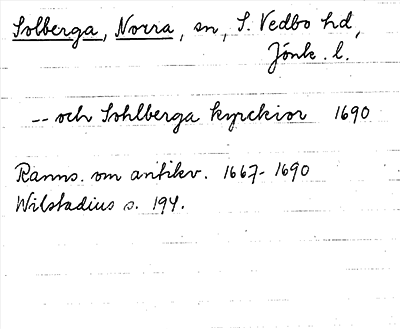 Solberga, Norra, sn, S. Vedbo hd,
Jönk. l.
-- och Sohlberga kyrckior 1690
Ranns. om antikv. 1667-1690
Wilstadius s. 194.